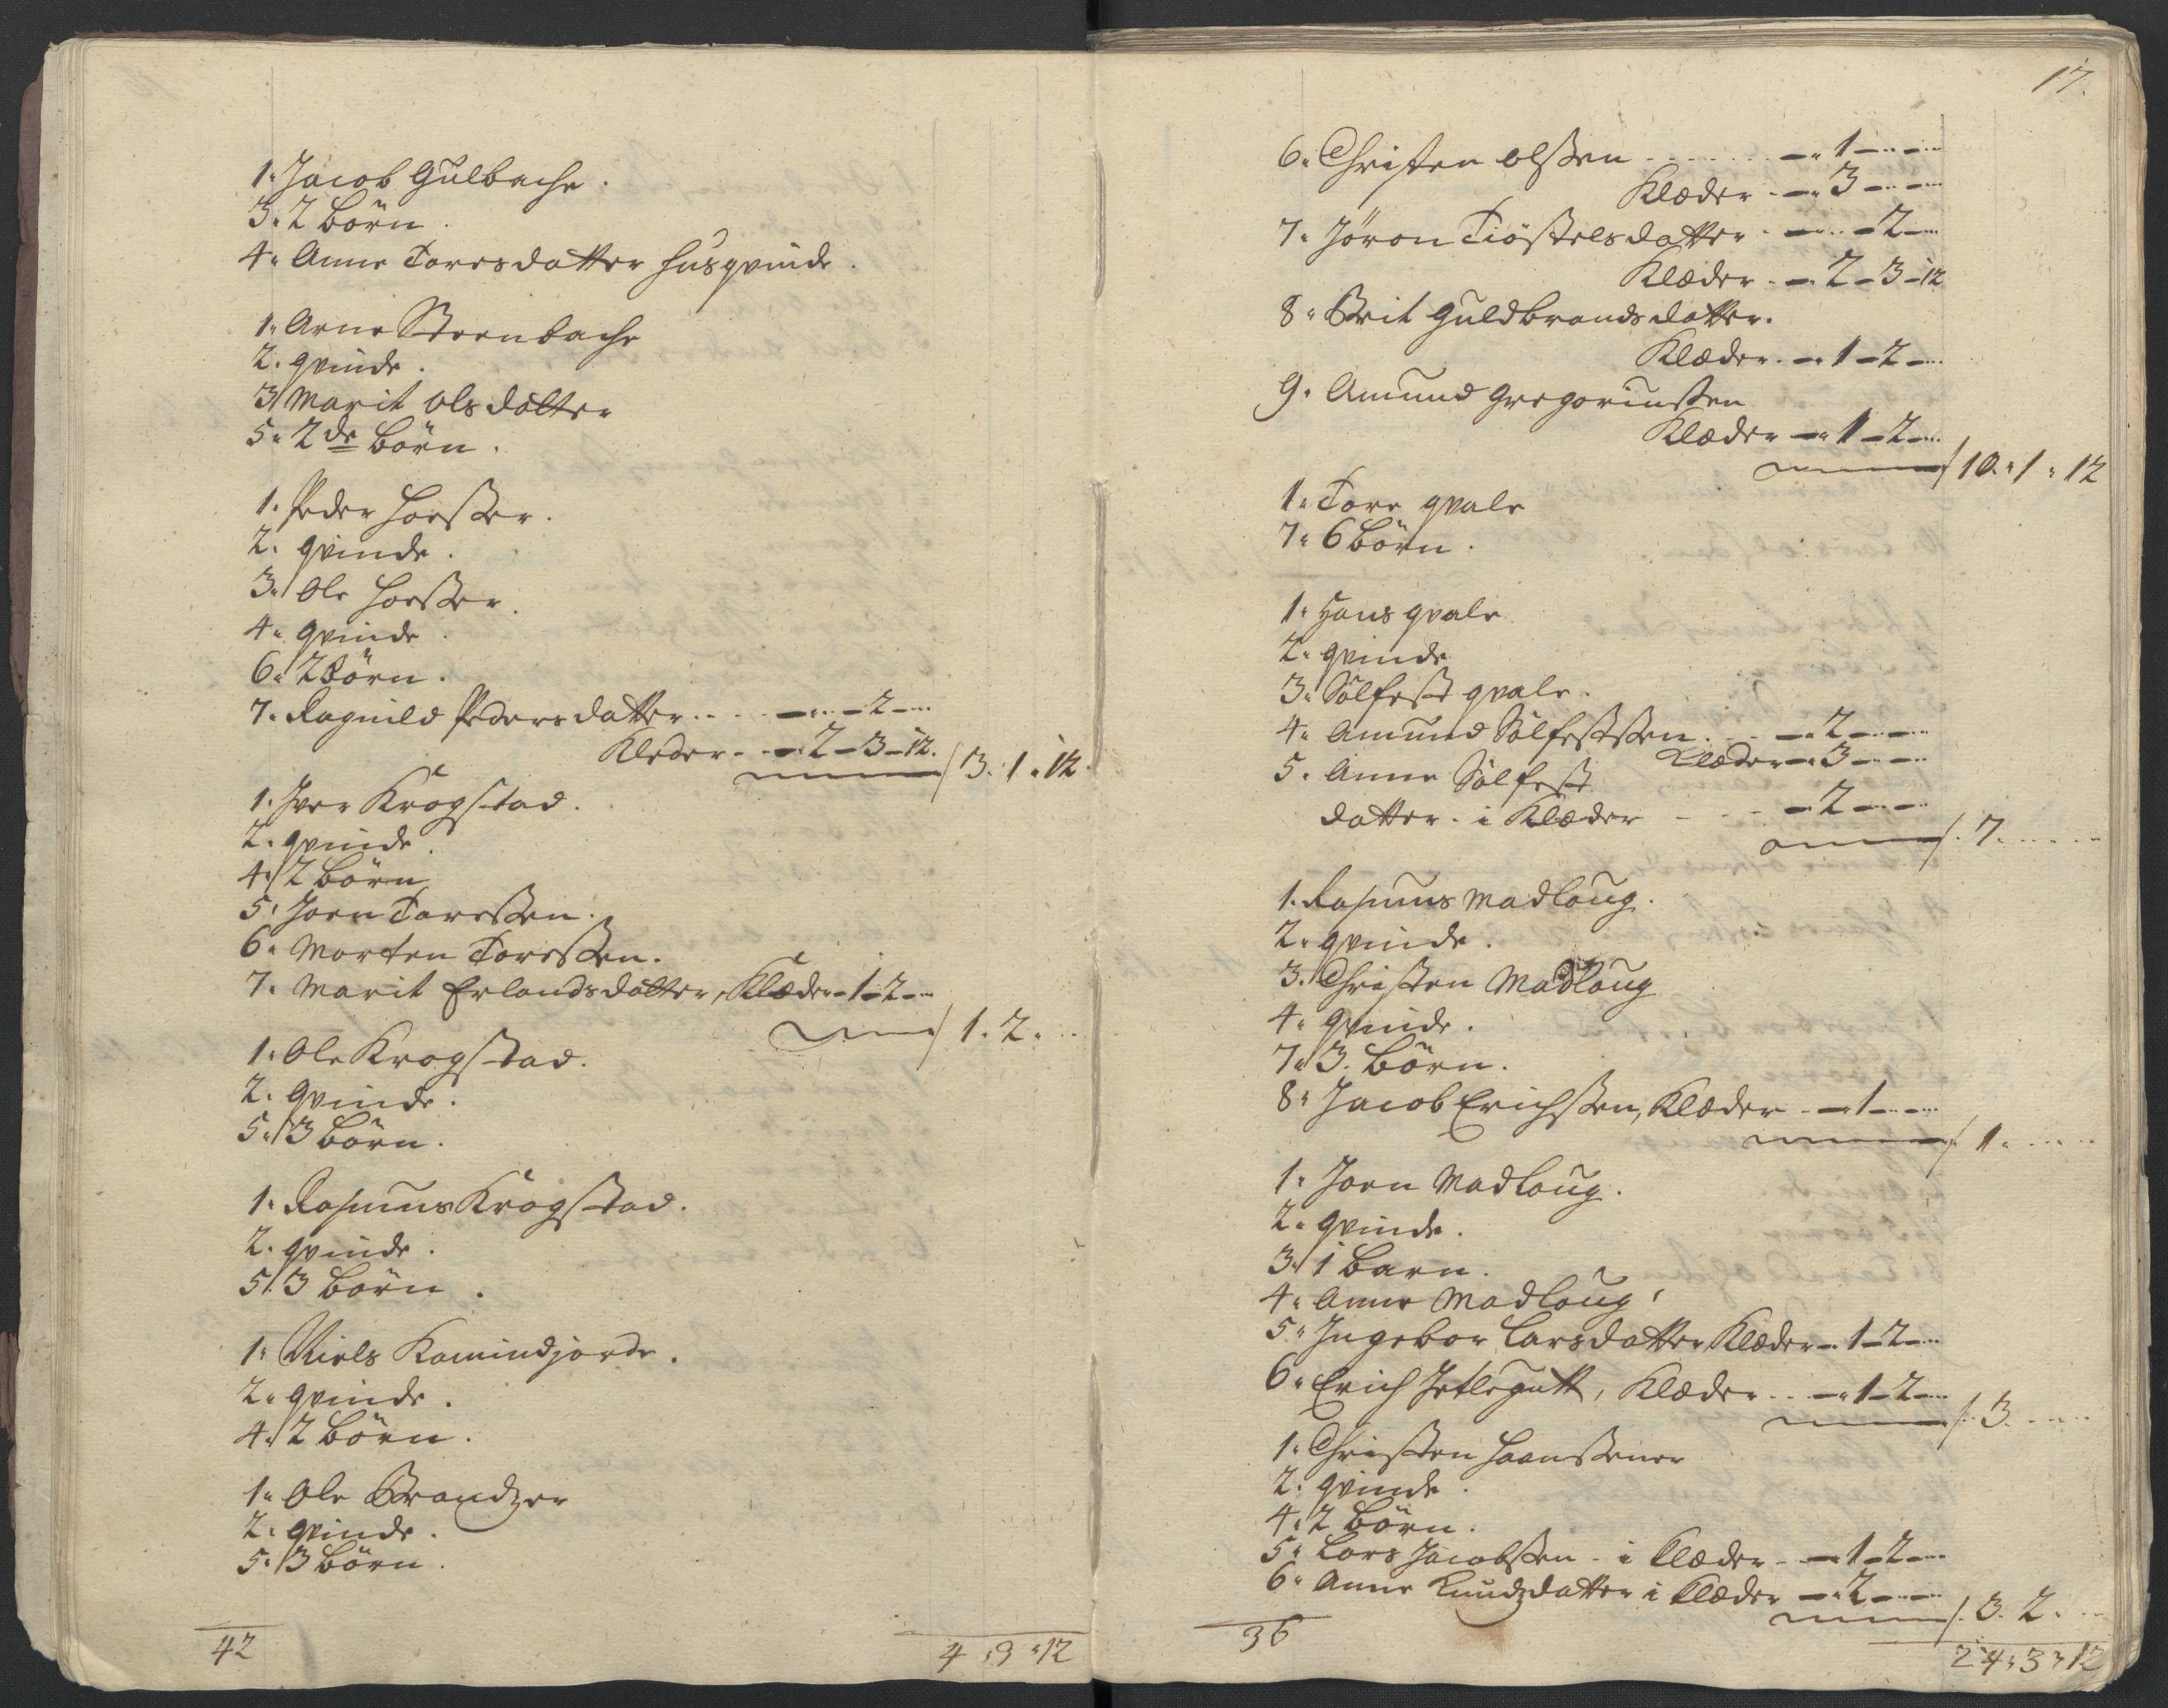 1. Jacob Gulbache.
3. 2 börn.
4. Anne Toresdatter husqvinde.
1. Arne Steenbache
2. qvinde.
3 Marit Olsdatter
5. 2de börn.
1. Peder
2. qvinde.
3. Ole
4. qvinde.
6. 2 Börn.
7. Ragnild Pedersdatter. - 2 -
Kleder - 2 - 3 - 12.
3. 1. 12.
1. Iver Krogstad.
2. qvinde.
4. 2 börn
5. Joen Toressen.
6. Morten Toressen.
7. Marit Erlandsdatter, Klæder - 1 - 2 -
1. 2.
1. Ole Krogstad.
2. qvinde.
5. 3 börn.
1. Rasmus Krogstad.
2. qvinde.
5. 3 börn.
1. Niels Kamindjorde.
2. qvinde.
4. 2 börn.
1. Ole Brandzer
2. qvinde.
5. 3 börn.
42
4. 3. 12
17.
6. Christen Olssen - 1 -
Klæder - 3 -
7. Jöron Tiöstelsdatter - 2 -
Klæder - 2 - 3 - 12
8. Brit Guldbrandsdatter.
Klæder - 1 - 2 -
9. Amund Gregoriussen
Klæder - 1 - 2 -
10. 1. 12
1. Tore qvale
7. 6 börn.
1. Hans qvale
2. qvinde
3. Sölfest qvale.
4. Amund Sölfestssen. - 2 -
Klæder - 3 -
5. Anne Sölfest
datter. i Klæder - 2 -
7.
1. Rasmus Madloug.
2. qvinde.
3. Christen Madloug
4. qvinde.
7. 3. börn.
8. Jacob Erichssen, Klæder - 1 -
1.
1. Joen Madloug.
2. qvinde.
3. 1 barn.
4. Anne Madloug.
5. Ingebor Larsdatter Klæder - 1 - 2 -
6. Erich, Klæder - 1 - 2 -
3.
1. Christen
2. qvinde.
4. 2 börn.
5. Lars Jacobssen - i Klæder - 1 - 2 -
6. Anne Knudzdatter i Klæder - 2 -
3. 2.
36
24. 3. 12